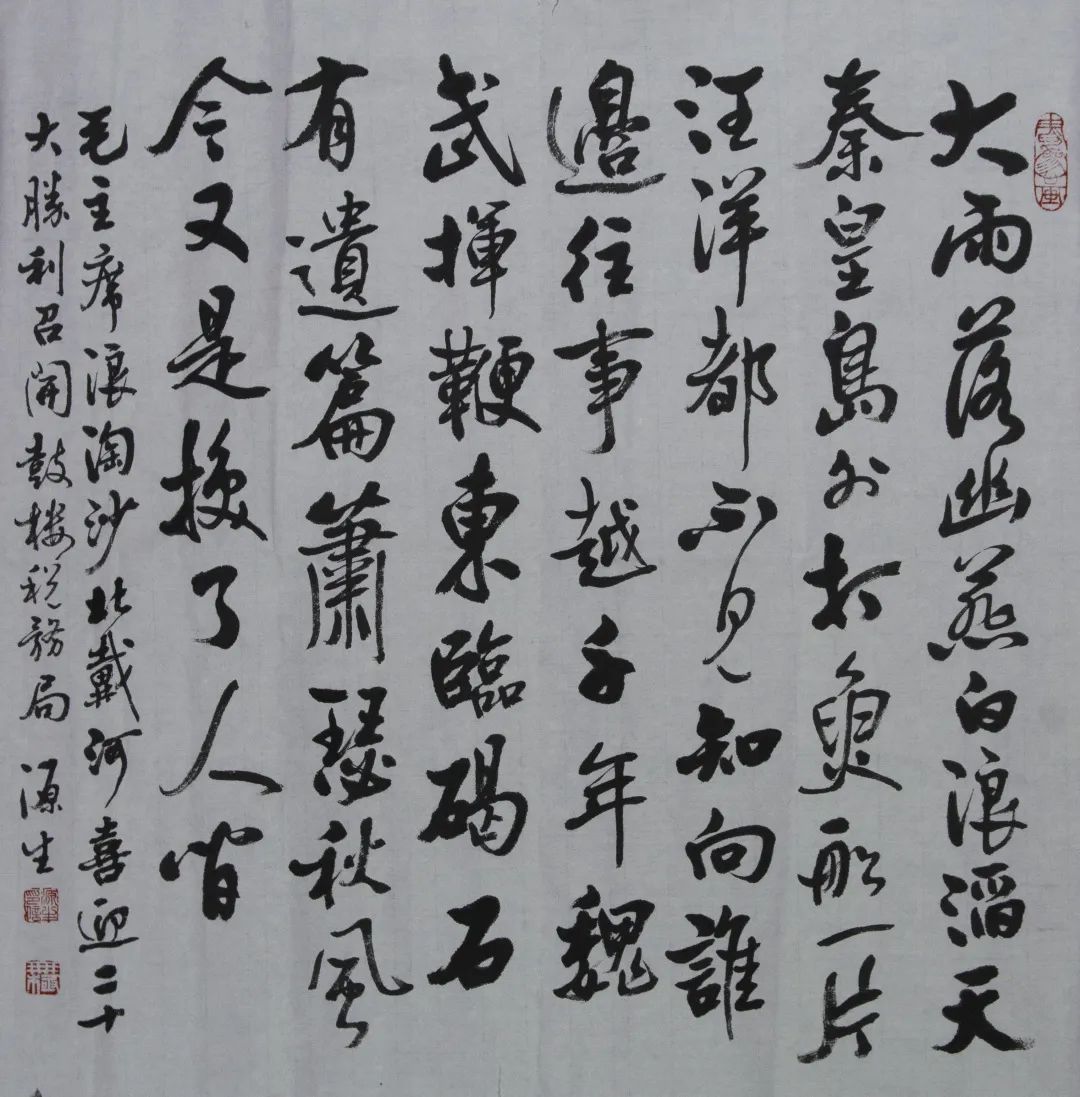 大雨落幽燕白浪滔天
秦皇島外打魚船一片
汪洋都不見知向誰
邊往事越千年魏
武揮鞭東臨碣石
有遺篇蕭瑟秋風
今又是換了人間
毛主席浪淘沙北戴河喜迎二十
大勝利召開鼓樓税務局 源生